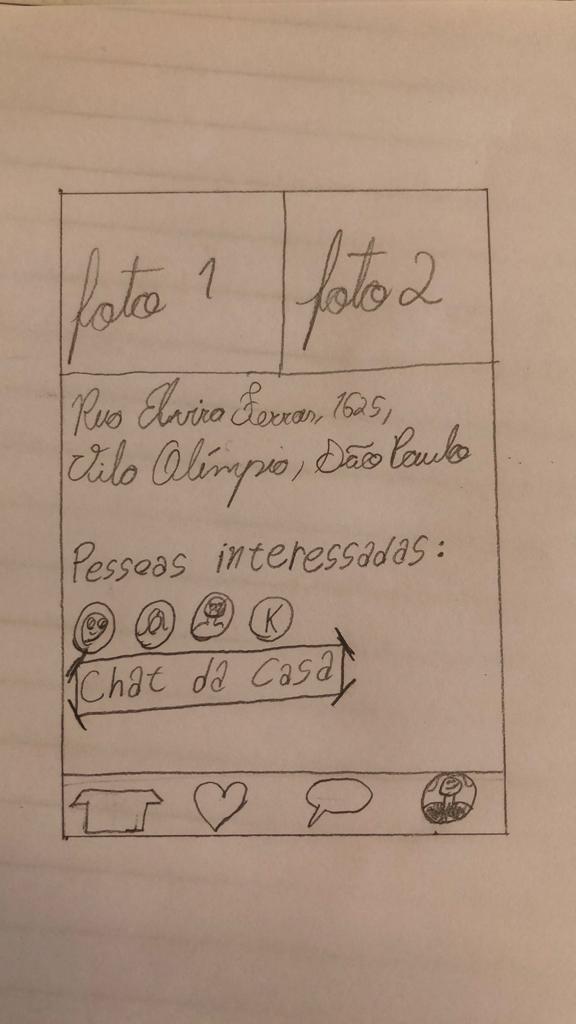 foto 1
foto 2
Rua Elvira Ferraz, 1625,
Vila Olímpia, São Paulo
Pessoas interessadas:
K
Chat da Casa